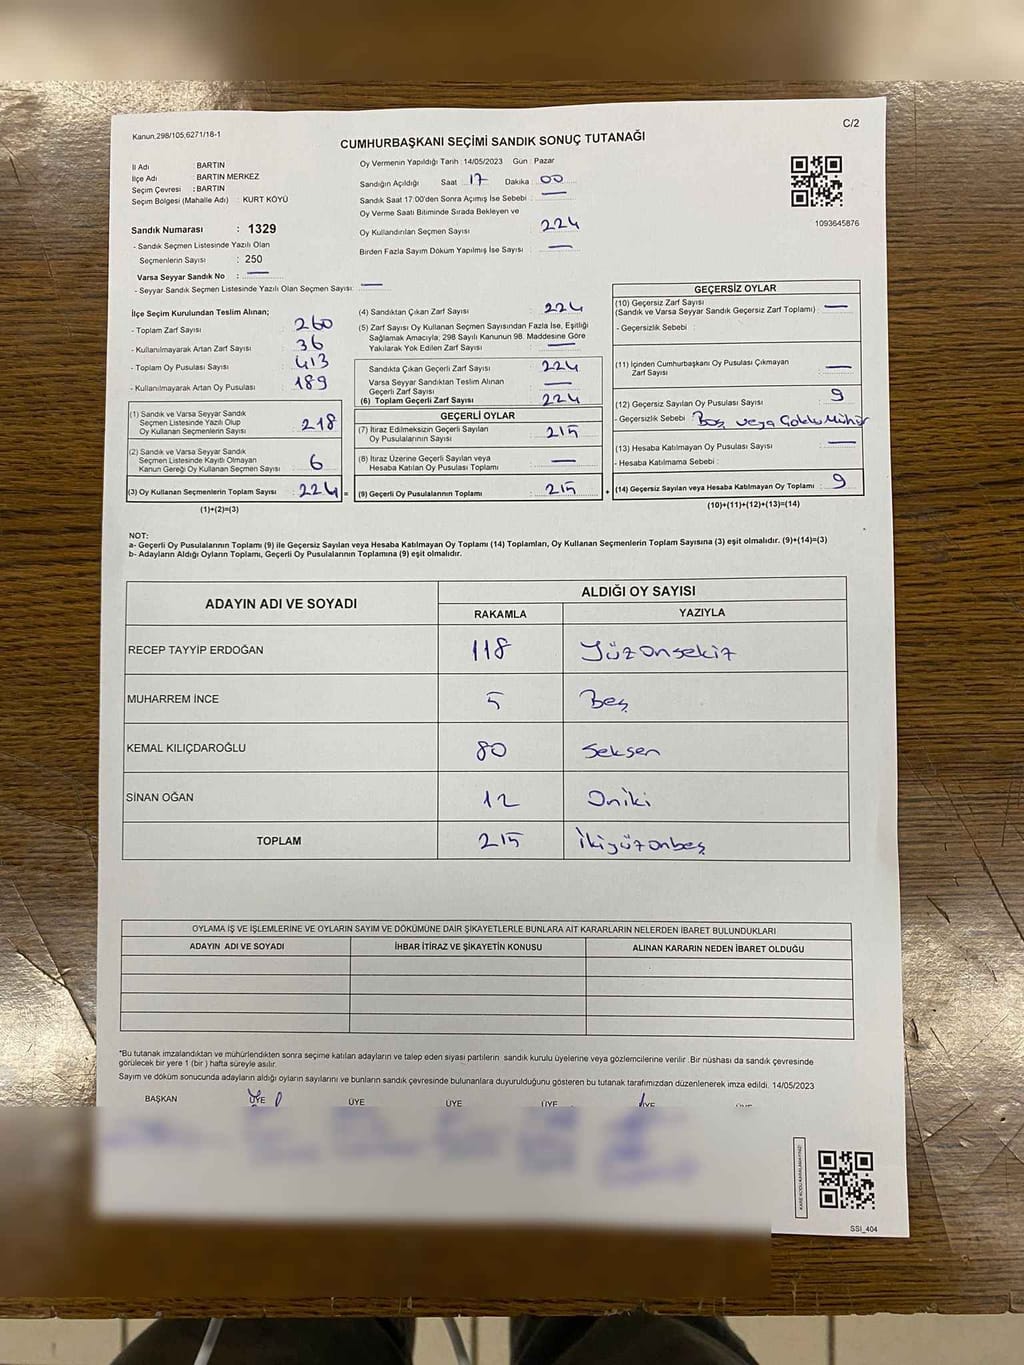 Kanun,298/105;6271/18-1
C/2
CUMHURBAŞKANI SEÇİMİ SANDIK SONUÇ TUTANAĞI
İl Adı : BARTIN
İlçe Adı : BARTIN MERKEZ
Seçim Çevresi : BARTIN
Seçim Bölgesi (Mahalle Adı) : KURT KÖYÜ
Sandık Numarası : 1329
- Sandık Seçmen Listesinde Yazılı Olan
Seçmenlerin Sayısı : 250
Varsa Seyyar Sandık No : —
- Seyyar Sandık Seçmen Listesinde Yazılı Olan Seçmen Sayısı: —
Oy Vermenin Yapıldığı Tarih :14/05/2023 Gün : Pazar
Sandığın Açıldığı Saat : 17 Dakika : 00
Sandık Saat 17:00'den Sonra Açımış İse Sebebi : —
Oy Verme Saati Bitiminde Sırada Bekleyen ve
Oy Kullandırılan Seçmen Sayısı : 224
Birden Fazla Sayım Döküm Yapılmış İse Sayısı : —
1093645876
İlçe Seçim Kurulundan Teslim Alınan;
- Toplam Zarf Sayısı : 260
- Kullanılmayarak Artan Zarf Sayısı : 36
- Toplam Oy Pusulası Sayısı : 413
- Kullanılmayarak Artan Oy Pusulası : 189
(1) Sandık ve Varsa Seyyar Sandık
Seçmen Listesinde Yazılı Olup
Oy Kullanan Seçmenlerin Sayısı : 218
(2) Sandık ve Varsa Seyyar Sandık
Seçmen Listesinde Kayıtlı Olmayan
Kanun Gereği Oy Kullanan Seçmen Sayısı : 6
(3) Oy Kullanan Seçmenlerin Toplam Sayısı : 224 =
(1)+(2)=(3)
(4) Sandıktan Çıkan Zarf Sayısı : 224
(5) Zarf Sayısı Oy Kullanan Seçmen Sayısından Fazla İse, Eşitliği
Sağlamak Amacıyla; 298 Sayılı Kanunun 98. Maddesine Göre
Yakılarak Yok Edilen Zarf Sayısı : —
Sandıkta Çıkan Geçerli Zarf Sayısı : 224
Varsa Seyyar Sandıktan Teslim Alınan
Geçerli Zarf Sayısı : —
(6) Toplam Geçerli Zarf Sayısı : 224
GEÇERLİ OYLAR
(7) İtiraz Edilmeksizin Geçerli Sayılan
Oy Pusulalarının Sayısı : 215
(8) İtiraz Üzerine Geçerli Sayılan veya
Hesaba Katılan Oy Pusulası Toplamı : —
(9) Geçerli Oy Pusulalarının Toplamı : 215 +
GEÇERSİZ OYLAR
(10) Geçersiz Zarf Sayısı
(Sandık ve Varsa Seyyar Sandık Geçersiz Zarf Toplamı) : —
- Geçersizlik Sebebi :
(11) İçinden Cumhurbaşkanı Oy Pusulası Çıkmayan
Zarf Sayısı : —
(12) Geçersiz Sayılan Oy Pusulası Sayısı : 9
- Geçersizlik Sebebi : Boş veya Çoklu Mühür
(13) Hesaba Katılmayan Oy Pusulası Sayısı : —
- Hesaba Katılmama Sebebi :
(14) Geçersiz Sayılan veya Hesaba Katılmayan Oy Toplamı : 9
(10)+(11)+(12)+(13)=(14)
NOT:
a- Geçerli Oy Pusulalarının Toplamı (9) ile Geçersiz Sayılan veya Hesaba Katılmayan Oy Toplamı (14) Toplamları, Oy Kullanan Seçmenlerin Toplam Sayısına (3) eşit olmalıdır. (9)+(14)=(3)
b- Adayların Aldığı Oyların Toplamı, Geçerli Oy Pusulalarının Toplamına (9) eşit olmalıdır.
ADAYIN ADI VE SOYADI ALDIĞI OY SAYISI
RAKAMLA YAZIYLA
RECEP TAYYİP ERDOĞAN 118 Yüzonsekiz
MUHARREM İNCE 5 Beş
KEMAL KILIÇDAROĞLU 80 Seksen
SİNAN OĞAN 12 Oniki
TOPLAM 215 İkiyüzonbeş
OYLAMA İŞ VE İŞLEMLERİNE VE OYLARIN SAYIM VE DÖKÜMÜNE DAİR ŞİKAYETLERLE BUNLARA AİT KARARLARIN NELERDEN İBARET BULUNDUKLARI
ADAYIN ADI VE SOYADI İHBAR İTİRAZ VE ŞİKAYETİN KONUSU ALINAN KARARIN NEDEN İBARET OLDUĞU
*Bu tutanak imzalandıktan ve mühürlendikten sonra seçime katılan adayların ve talep eden siyasi partilerin sandık kurulu üyelerine veya gözlemcilerine verilir .Bir nüshası da sandık çevresinde
görülecek bir yere 1 (bir ) hafta süreyle asılır.
Sayım ve döküm sonucunda adayların aldığı oyların sayılarını ve bunların sandık çevresinde bulunanlara duyurulduğunu gösteren bu tutanak tarafımızdan düzenlenerek imza edildi. 14/05/2023
BAŞKAN ÜYE ÜYE ÜYE ÜYE ÜYE
SSI_404